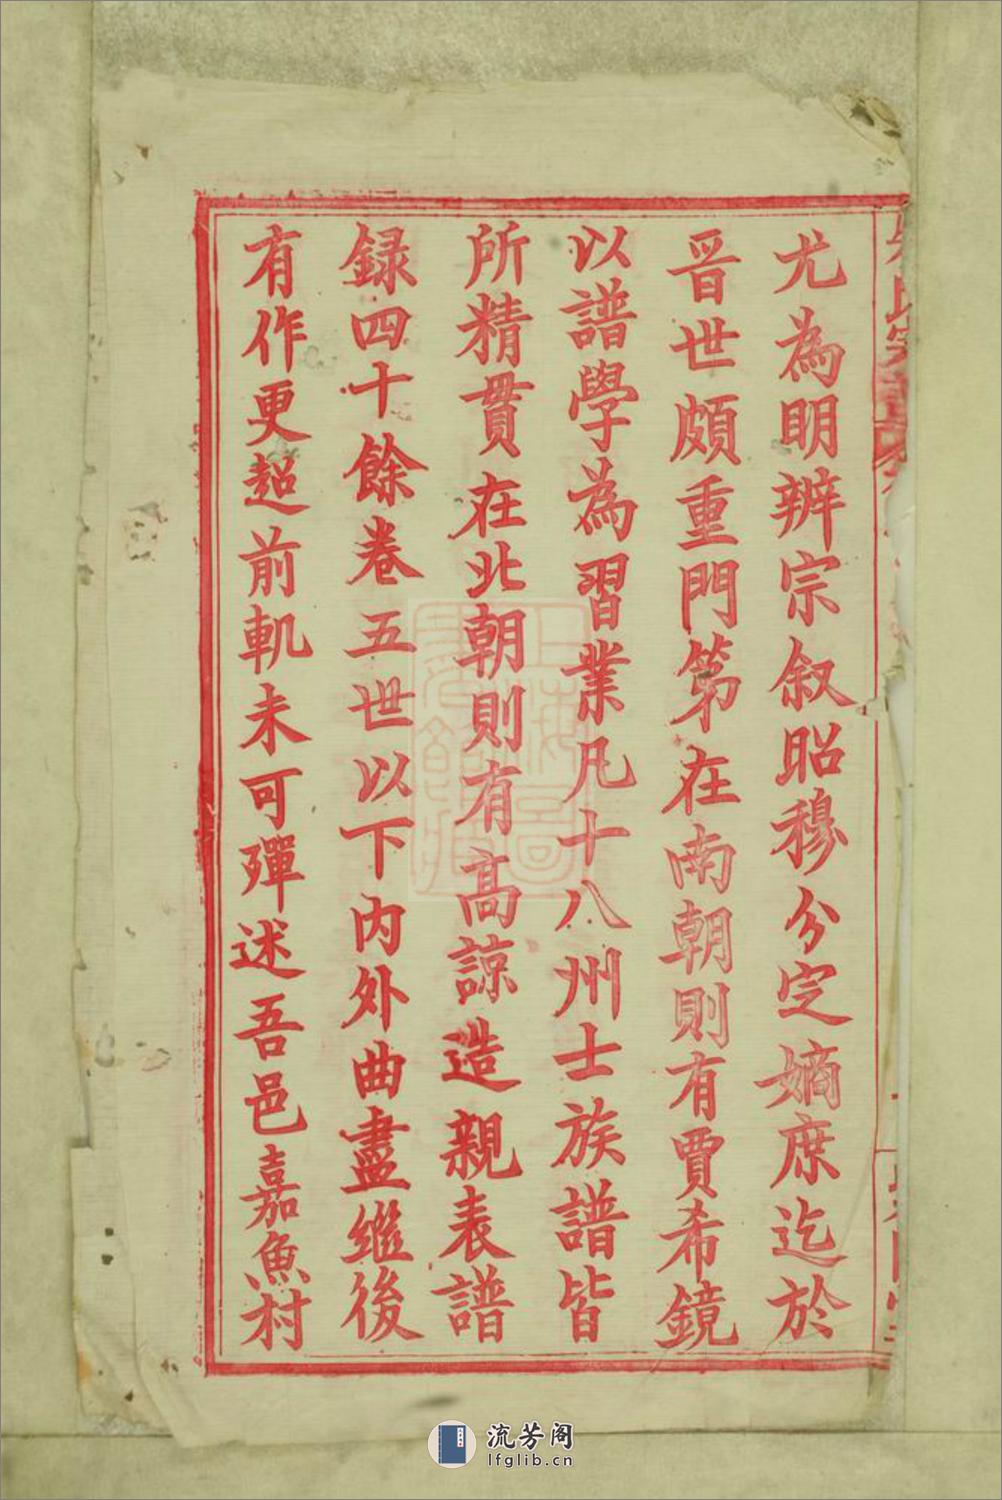 尤為明辨宗叙昭穆分定嫡庶迄於
晋世頗重門第在南朝則有賈希鏡
以譜學為習業凡十八州士族譜皆
所精貫在北朝則有高諒造親表譜
録四十餘卷五世以下内外曲盡繼後
有作更超前軌未可殫述吾邑嘉魚村
流芳阁
lfglib.cn